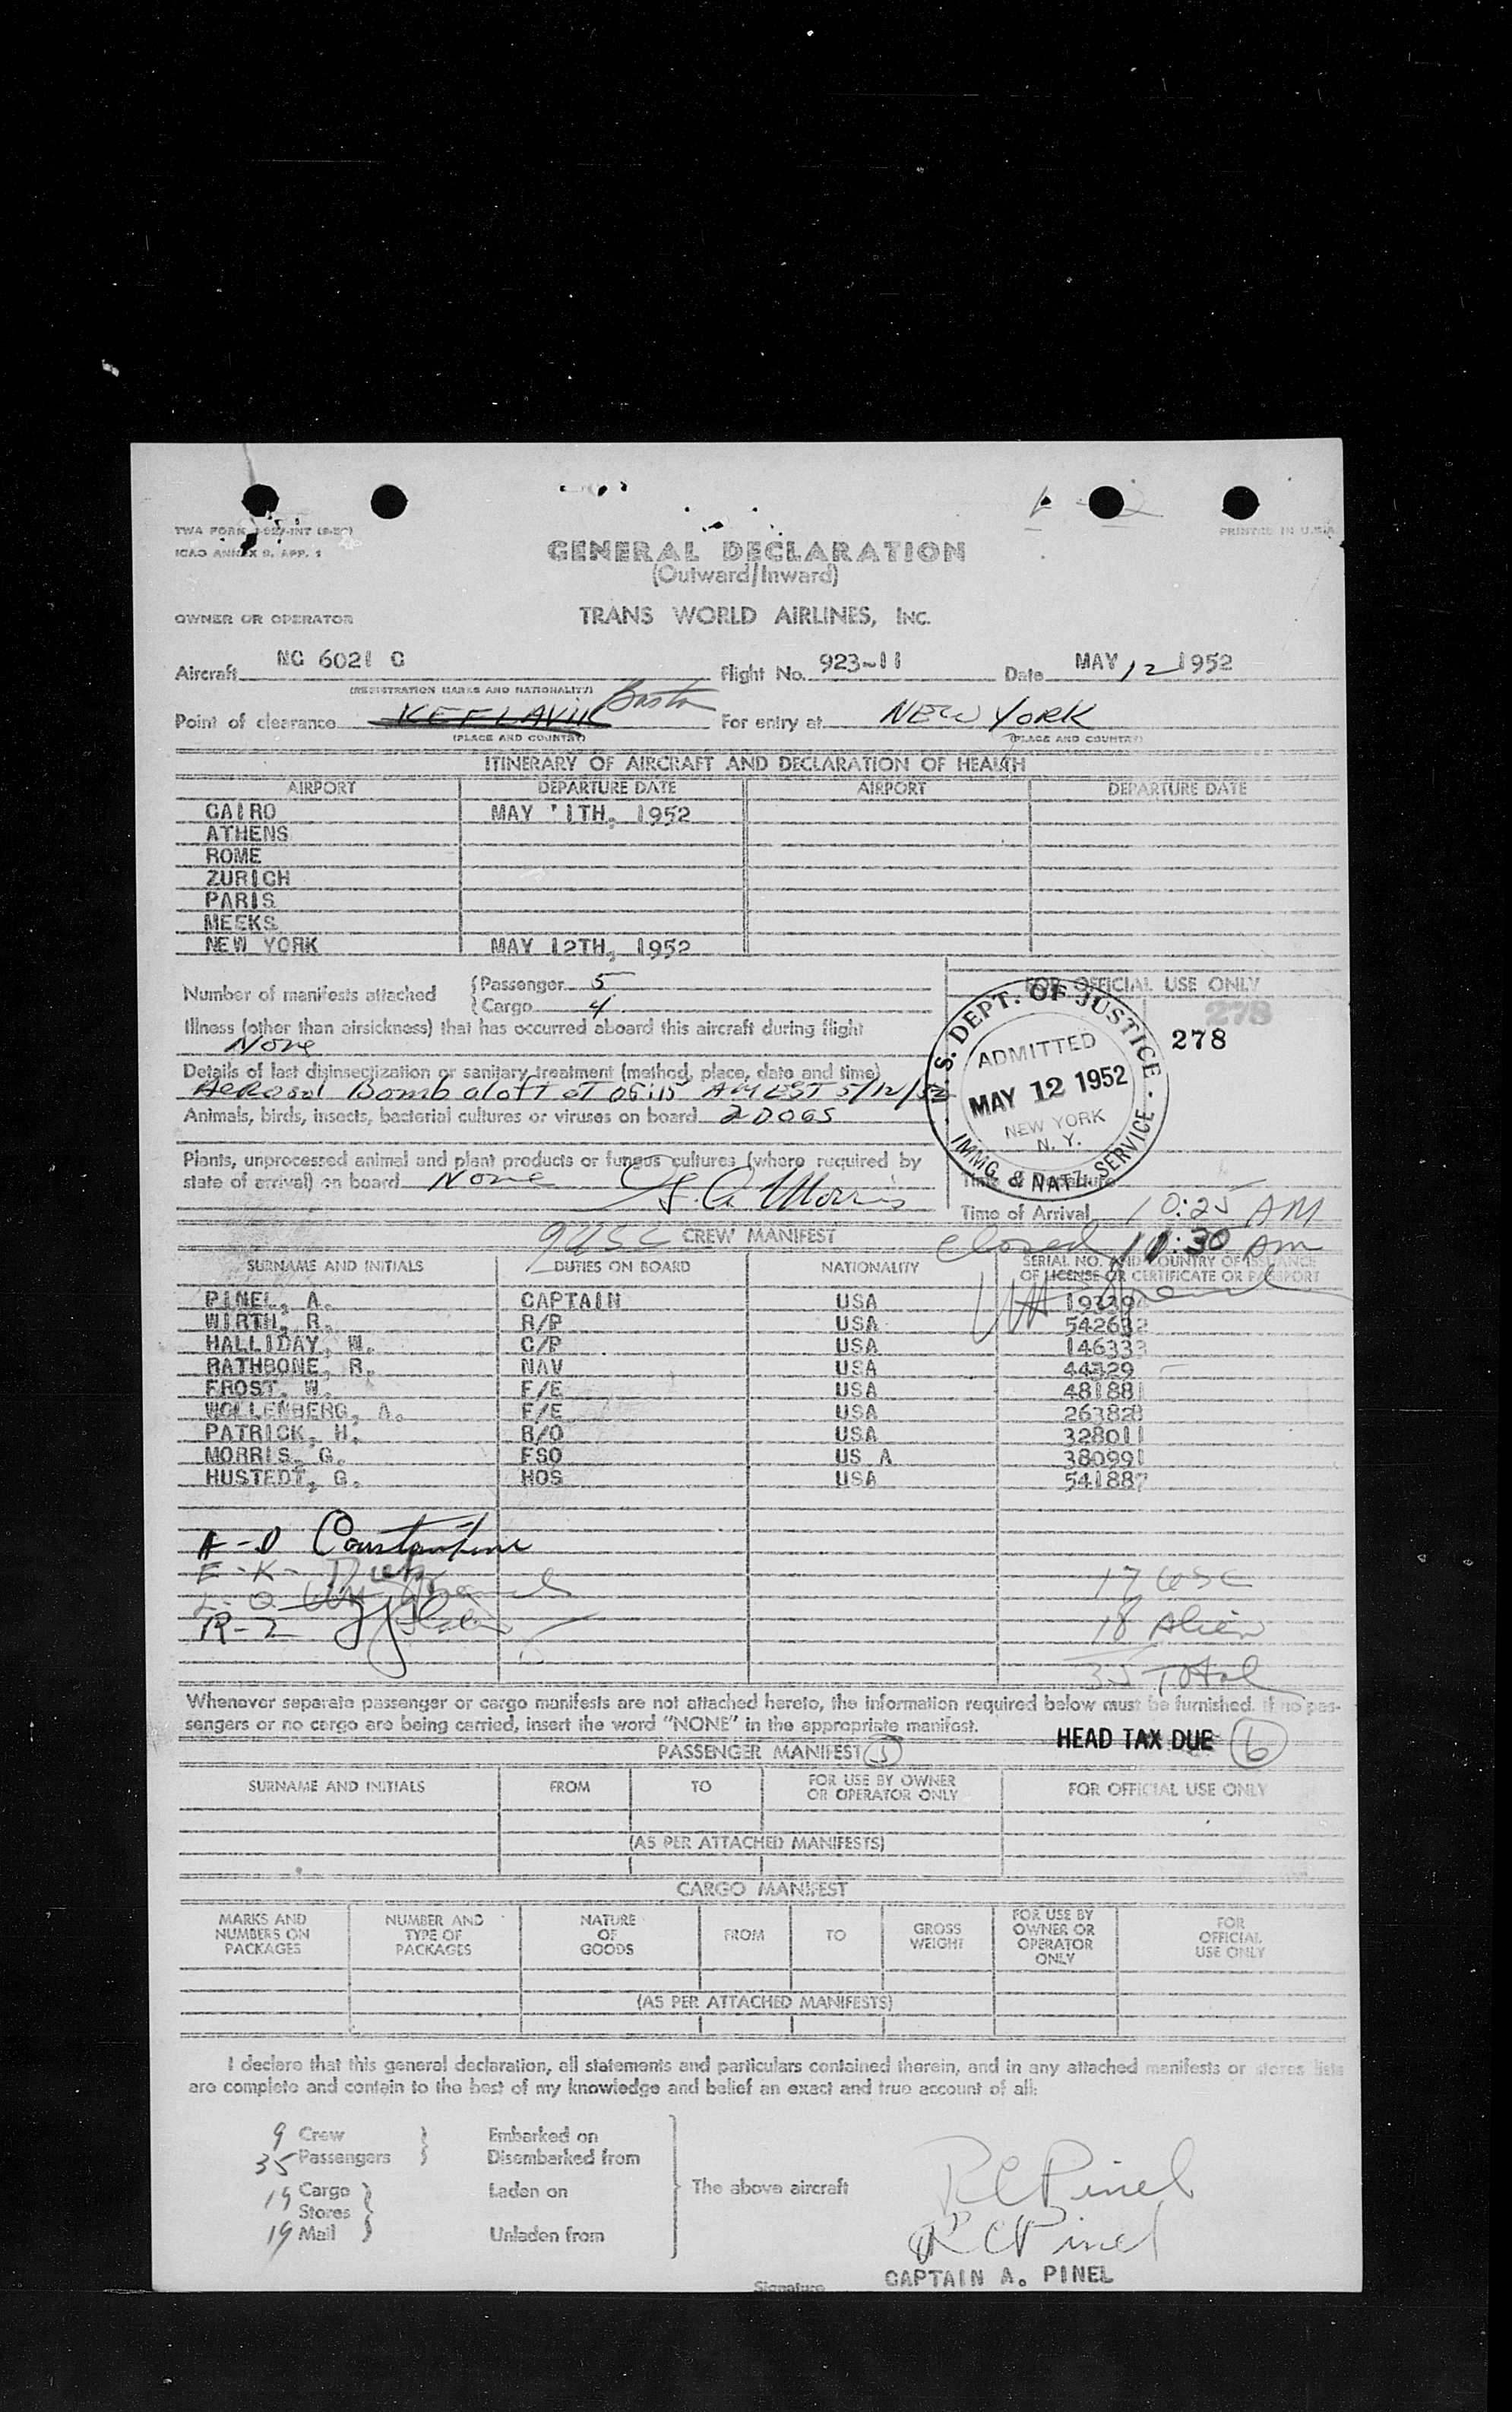 TWA FORM
ICAO ANNEX 9, APP. 1
PRINTED IN U.S.A.
GENERAL DECLARATION
(Outward/Inward)
OWNER OR OPERATOR TRANS WORLD AIRLINES, INC.
Aircraft NC 6021 C Flight No. 923-11 Date MAY 12 1952
(REGISTRATION MARKS AND NATIONALITY)
Point of clearance KEFLAVIK Boston For entry at NEW YORK
(PLACE AND COUNTRY) (PLACE AND COUNTRY)
ITINERARY OF AIRCRAFT AND DECLARATION OF HEALTH
AIRPORT DEPARTURE DATE AIRPORT DEPARTURE DATE
CAIRO MAY 11TH, 1952
ATHENS
ROME
ZURICH
PARIS
MEEKS
NEW YORK MAY 12TH, 1952
Number of manifests attached {Passenger 5
{Cargo 4
FOR OFFICIAL USE ONLY
278
278
Illness (other than airsickness) that has occurred aboard this aircraft during flight
None
Details of last disinsectization or sanitary treatment (method, place, date and time)
Aerosol Bomb aloft at 06:15 AM EST 5/12/52
Animals, birds, insects, bacterial cultures or viruses on board 2 DOGS
U.S. DEPT. OF JUSTICE
ADMITTED
MAY 12 1952
NEW YORK
N. Y.
IMMG. & NATL. SERVICE
Plants, unprocessed animal and plant products or fungus cultures (where required by
state of arrival) on board None G. A. Morris
Time of Departure
Time of Arrival 10:25 AM
9 USC CREW MANIFEST closed 11:30 AM
SURNAME AND INITIALS DUTIES ON BOARD NATIONALITY SERIAL NO. AND COUNTRY OF ISSUANCE
OF LICENSE OR CERTIFICATE OR PASSPORT
PINEL, A. CAPTAIN USA
WIRTH, R. R/P USA 542632
HALLIDAY, W. C/P USA 146333
RATHBONE, R. NAV USA 44329
FROST, W. F/E USA 481881
WOLLENBERG, A. F/E USA 263828
PATRICK, H. R/O USA 328011
MORRIS, G. FSO US A 380991
HUSTEDT, G. HOS USA 541887
A-D Constantine
E-K-
L-Q
R-Z
17 USC
18 Alien
35 Total
Whenever separate passenger or cargo manifests are not attached hereto, the information required below must be furnished. If no pas-
sengers or no cargo are being carried, insert the word "NONE" in the appropriate manifest.
HEAD TAX DUE 6
PASSENGER MANIFEST 5
SURNAME AND INITIALS FROM TO FOR USE BY OWNER OR OPERATOR ONLY FOR OFFICIAL USE ONLY
(AS PER ATTACHED MANIFESTS)
CARGO MANIFEST
MARKS AND NUMBERS ON PACKAGES NUMBER AND TYPE OF PACKAGES NATURE OF GOODS FROM TO GROSS WEIGHT FOR USE BY OWNER OR OPERATOR ONLY FOR OFFICIAL USE ONLY
(AS PER ATTACHED MANIFESTS)
I declare that this general declaration, all statements and particulars contained therein, and in any attached manifests or stores lists
are complete and contain to the best of my knowledge and belief an exact and true account of all:
9 Crew } Embarked on
35 Passengers } Disembarked from
19 Cargo } Laden on The above aircraft
Stores
19 Mail } Unladen from
R C Pinel
R C Pinel
CAPTAIN A. PINEL
Signature